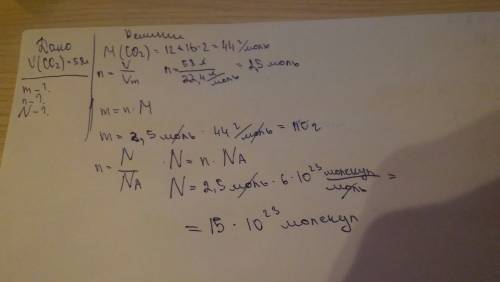 Дано
V(CO₂)=58л
m-?
n-?
N-?
Решение
M(CO₂)=12+16·2=44 г/моль
n=V/Vm n=58 л/22,4 л/моль =2,5 моль
m=n·M
m=2,5 моль·44 г/моль=110 г
n=N/NA N=n·NA
N=2,5 моль·6·10²³ молекул/моль =
=15·10²³ молекул